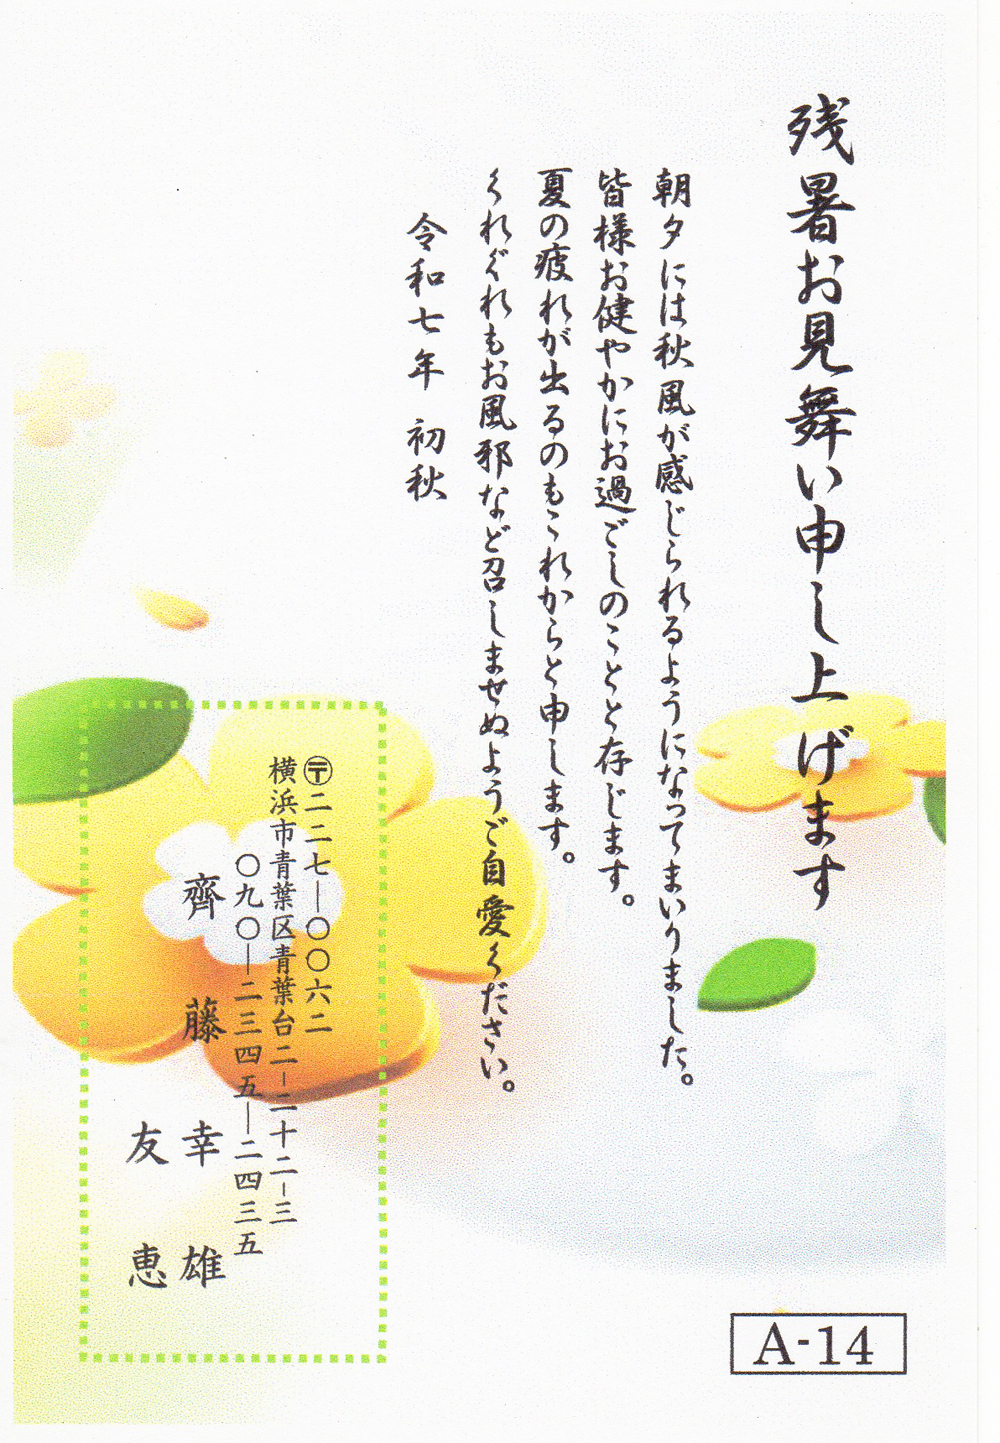 残暑お見舞い申し上げます
朝夕には秋風が感じられるようになってまいりました。
皆様お健やかにお過ごしのことと存じます。
夏の疲れが出るのもこれからと申します。
くれぐれもお風邪など召しませぬようご自愛ください。
令和七年　初秋
〶二二七―〇〇六二
横浜市青葉区青葉台二-二十二-三
〇九〇―二三四五―二四三五
齊藤幸雄
友恵
A-14